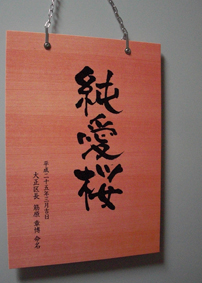 純愛桜
平成二十五年三月吉日
大正区長 筋原 章博 命名